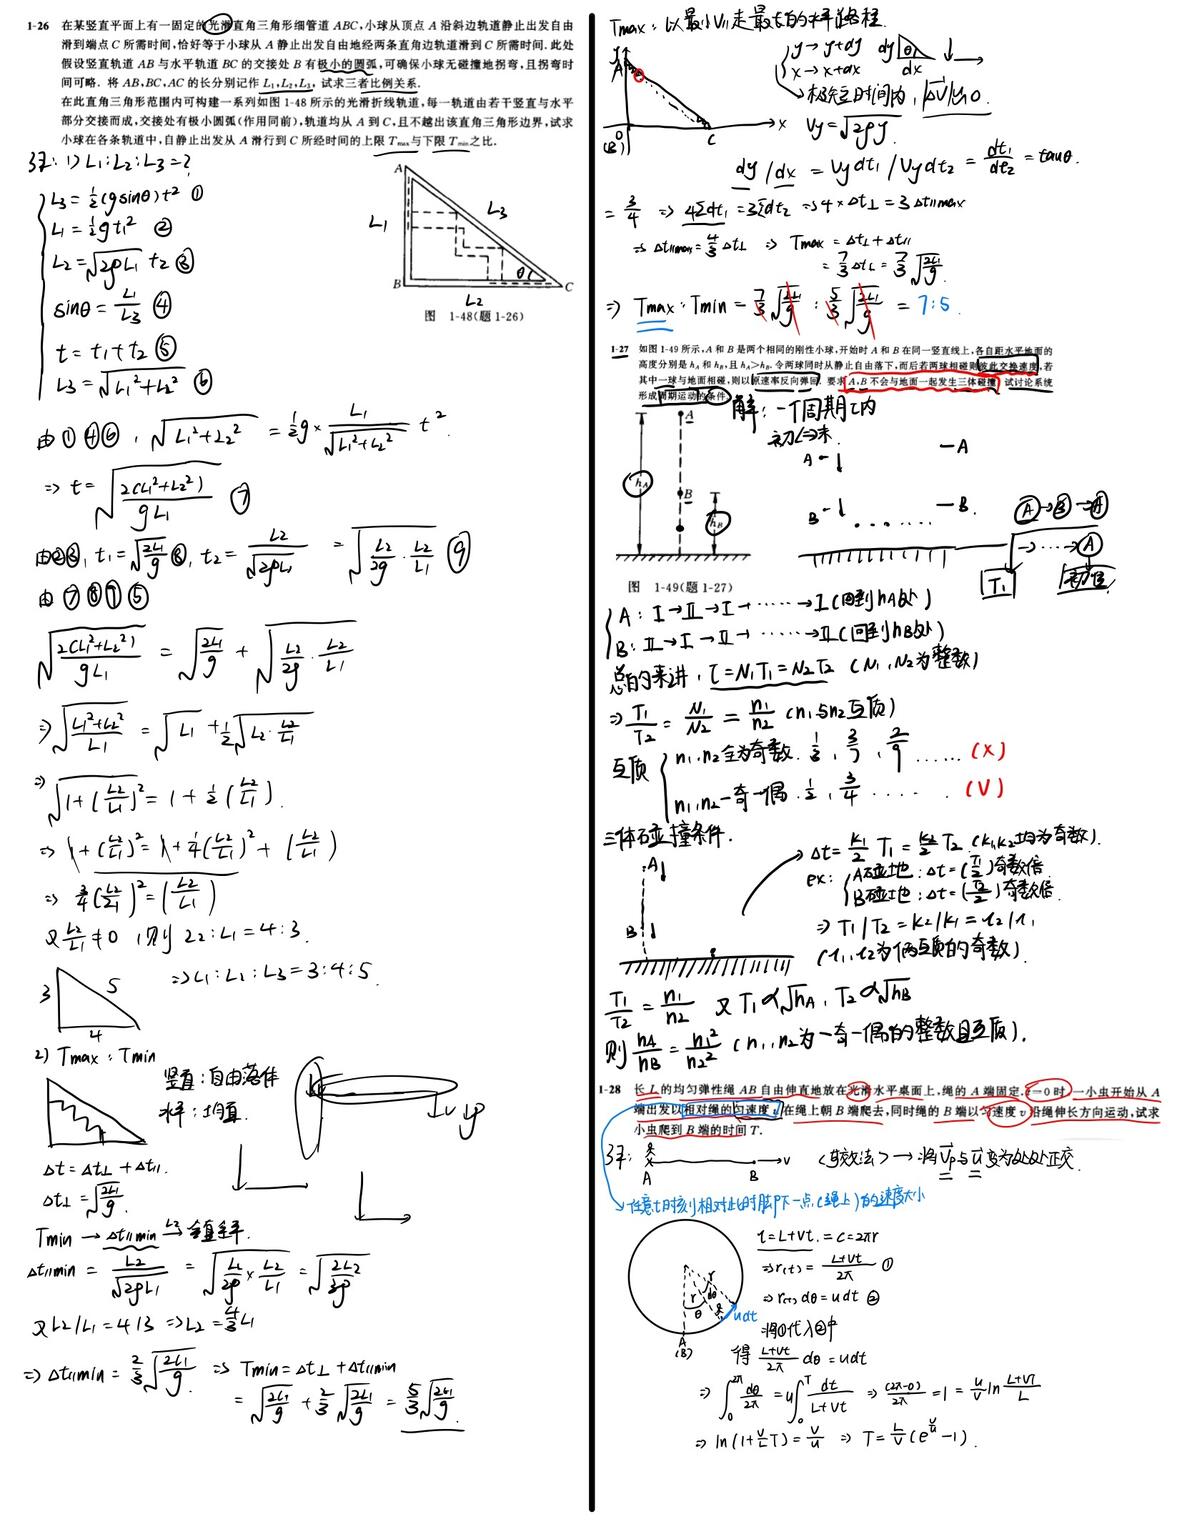 1-26 在某竖直平面上有一固定的光滑直角三角形细管道 ABC,小球从顶点 A 沿斜边轨道静止出发自由
滑到端点 C 所需时间,恰好等于小球从 A 静止出发自由地经两条直角边轨道滑到 C 所需时间.此处
假设竖直轨道 AB 与水平轨道 BC 的交接处 B 有极小的圆弧,可确保小球无碰撞地拐弯,且拐弯时
间可略. 将 AB,BC,AC 的长分别记作 L₁,L₂,L₃, 试求三者比例关系.
在此直角三角形范围内可构建一系列如图 1-48 所示的光滑折线轨道,每一轨道由若干竖直与水平
部分交接而成,交接处有极小圆弧(作用同前),轨道均从 A 到 C,且不越出该直角三角形边界,试求
小球在各条轨道中,自静止出发从 A 滑行到 C 所经时间的上限 Tmax与下限 Tmin之比.
1) L₁:L₂:L₃=?
L₃=½(gsinθ)t² ①
L₁=½gt₁² ②
L₂=√2gL₁ t₂ ③
sinθ=L₁/L₃ ④
t=t₁+t₂ ⑤
L₃=√L₁²+L₂² ⑥
A
L₁
L₃
θ
B
L₂
C
图 1-48(题 1-26)
由①④⑥, √L₁²+L₂² = ½g× L₁/√L₁²+L₂² t².
⇒ t=√2(L₁²+L₂²)/gL₁ ⑦
由②③, t₁=√2L₁/g ⑧, t₂= L₂/√2gL₁ = √L₂/2g·L₂/L₁ ⑨
由⑦⑧⑨⑤
√2(L₁²+L₂²)/gL₁ = √2L₁/g + √L₂/2g·L₂/L₁
⇒ √L₁²+L₂²/L₁ = √L₁ + ½√L₂·L₂/L₁
⇒ √1+(L₂/L₁)² = 1+½(L₂/L₁).
⇒ 1+(L₂/L₁)² = 1+¼(L₂/L₁)²+(L₂/L₁)
⇒ ¾(L₂/L₁)²=(L₂/L₁)
又L₂/L₁≠0, 则 L₂:L₁=4:3.
3 5 4
⇒L₁:L₂:L₃=3:4:5.
2) Tmax:Tmin
竖直:自由落体
水平:匀直
Δt=Δt⊥+Δt∥.
Δt⊥=√2L₁/g.
Tmin → Δt∥min
Δt∥min = L₂/√2gL₁ = √L₂/2g×L₂/L₁ = √2L₂/3g
又L₂/L₁=4/3 ⇒L₂=4/3L₁
⇒ Δt∥min=2/3√2L₁/g ⇒ Tmin=Δt⊥+Δt∥min
=√2L₁/g+2/3√2L₁/g=5/3√2L₁/g.
Tmax:以最小V∥走最长的水平路程.
y
A
O
(B)
C
x
y→y+dy
x→x+dx
dy θ dx
→极短时间内, |ΔV|≈0.
Vy=√2gy.
dy/dx = Vydt₁/Vydt₂ = dt₁/dt₂ = tanθ.
=3/4 ⇒ 4Σdt₁=3Σdt₂ ⇒4×Δt⊥=3Δt∥max
⇒Δt∥max=4/3Δt⊥ ⇒ Tmax=Δt⊥+Δt∥
=7/3Δt⊥=7/3√2L₁/g.
⇒ Tmax:Tmin=7/3√2L₁/g : 5/3√2L₁/g = 7:5.
1-27 如图 1-49 所示,A 和 B 是两个相同的刚性小球,开始时 A 和 B 在同一竖直线上,各自距水平地面的
高度分别是 hA 和 hB,且 hA>hB. 令两球同时从静止自由落下,而后若两球相碰则彼此交换速度,若
其中一球与地面相碰,则以原速率反向弹回. 要求 A,B 不会与地面一起发生三体碰撞,试讨论系统
形成周期运动的条件.
解: 一个周期τ内
A
hA
B
hB
图 1-49(题 1-27)
初⇔末
A
B
A
B
T₁
A: Ⅰ→Ⅱ→Ⅰ→……→Ⅰ(回到hA处)
B: Ⅱ→Ⅰ→Ⅱ→……→Ⅱ(回到hB处)
总的来讲, τ=N₁T₁=N₂T₂ (N₁,N₂为整数)
⇒ T₁/T₂ = N₁/N₂ = n₁/n₂ (n₁与n₂互质)
互质
n₁,n₂全为奇数. …… (X)
n₁,n₂一奇一偶. 1/2, 3/4 …… (V)
三体碰撞条件.
Δt=k₁/2 T₁=k₂/2 T₂.(k₁,k₂均为奇数).
ex: A碰地:Δt=(T₁/2)奇数倍
B碰地:Δt=(T₂/2)奇数倍
⇒ T₁/T₂=k₂/k₁=r₂/r₁
(r₁,r₂为俩互质的奇数).
A
B
T₁/T₂=n₁/n₂ 又 T₁∝√hA, T₂∝√hB
则 hA/hB=n₁²/n₂² (n₁,n₂为一奇一偶的整数且互质).
1-28 长 L 的均匀弹性绳 AB 自由伸直地放在光滑水平桌面上,绳的 A 端固定.t=0 时,一小虫开始从 A
端出发以相对绳的匀速度 u 在绳上朝 B 端爬去,同时绳的 B 端以匀速度 v 沿绳伸长方向运动,试求
小虫爬到 B 端的时间 T.
A
B
v
<等效法>→将
任意t时刻相对此时脚下一点(绳上)的速度大小
r
θ
dθ
udt
A
(B)
l=L+vt.=C=2πr
⇒r(t)=L+vt/2π ①
⇒ r(t)dθ=udt ②
将①代入②中
得 L+vt/2π dθ=udt
⇒ ∫₀²π dθ/2π = u∫₀ᵀ dt/L+vt ⇒ (2π-0)/2π=1=u/v ln L+vT/L
⇒ ln(1+v/L T)=v/u ⇒ T=L/v(e^v/u-1).